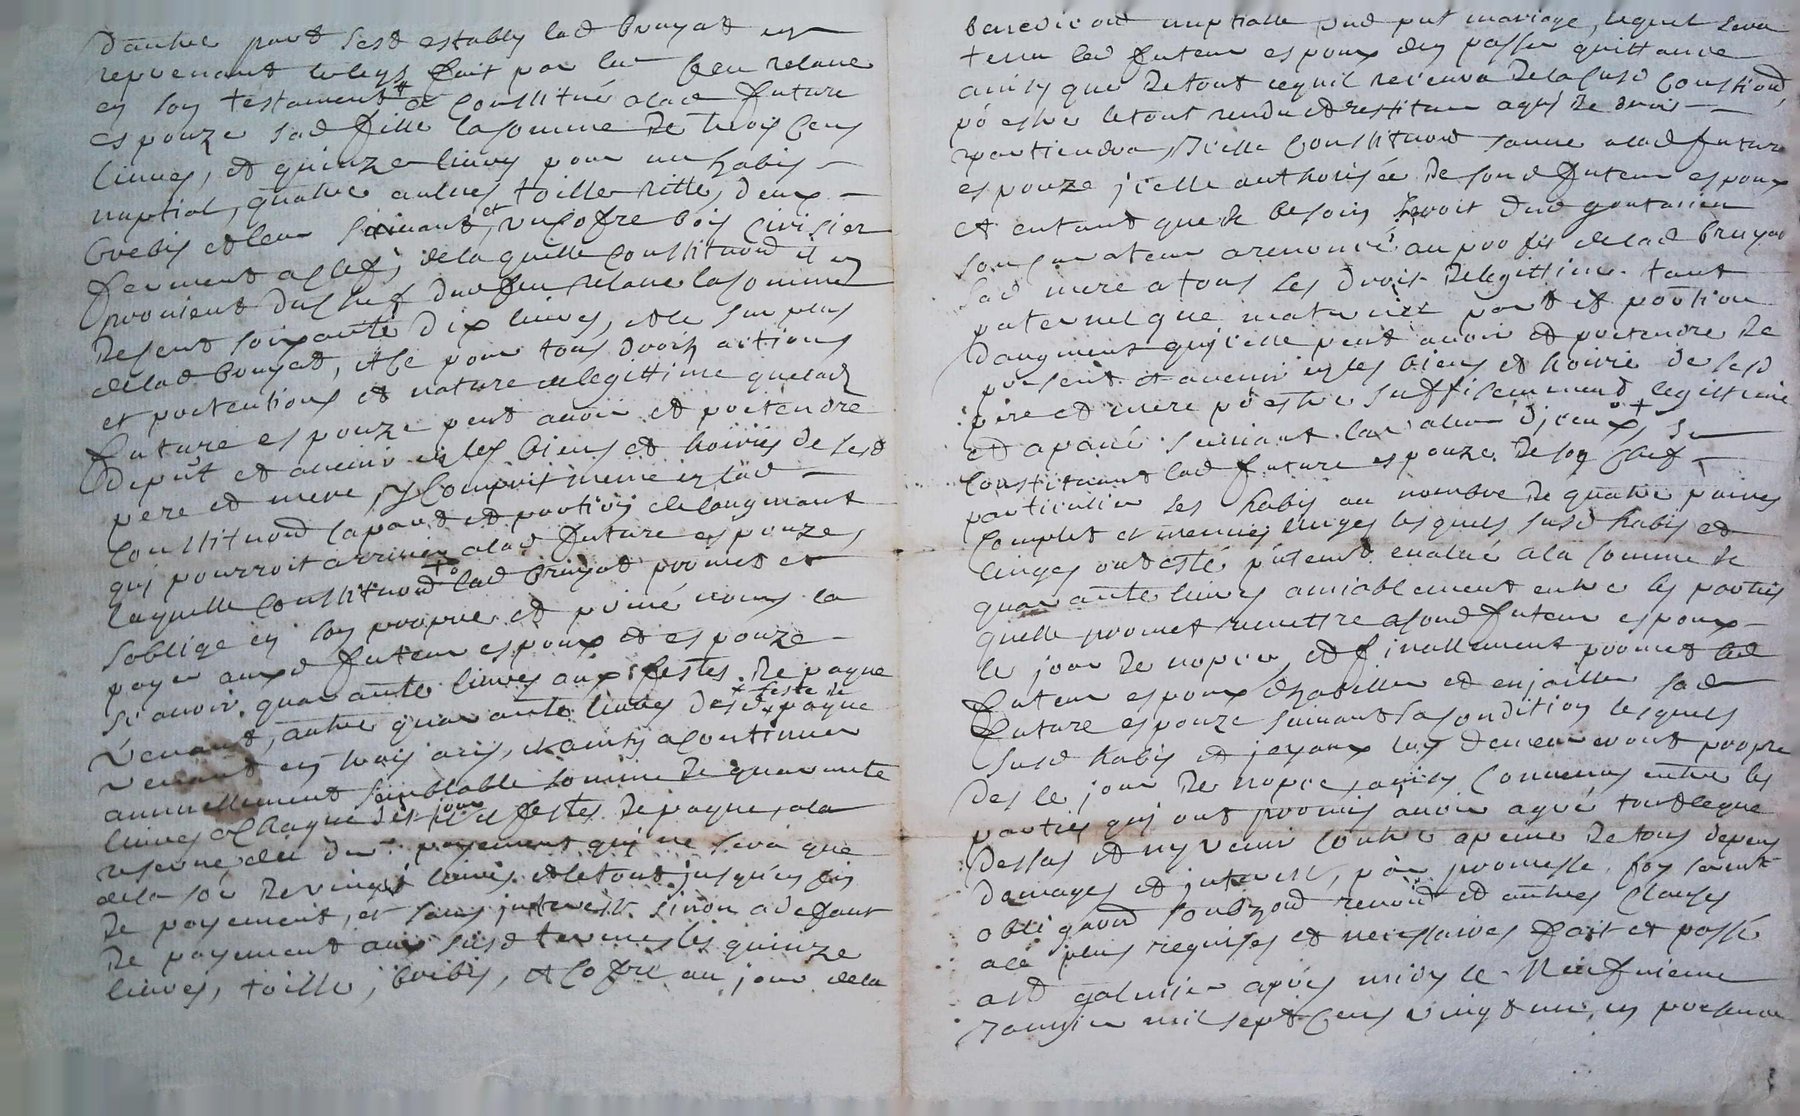 dautre part sest estably lad bruyad en
reprenant le legs fait par led feu relave
en son testament a constitué a lad future
espouze sad fille la somme de trois cens
livres, et quinze livres pour un habis
nuptial, quatre aulnes toille ritte, deux
brebis et leur suivant, et un cofre bois
fermant a clef, de laquelle constituaon il en
provient du chef dud feu relave la somme
de cent soixante dix livres, et le surplus
de lad bruyad, et ce pour tous droits actions
et pretentions et nature de legittime que lad
future espouze peut avoir et pretendre
de pnt et avenir en les biens et hoiries de sesd
pere et mere, y compris mesme en lad
constituaon la part et portion de laugment
quy pourroit arriver a lad future espouze
laquelle constituaon lad bruyad promet et
soblige en son propre et privé nom la
payer ausd futeur espoux et espouze
scavoir quarante livres aux festes de paque
venant, autre quarante livres desd feste de paque
venant en trois ans, et ainsy a continuer
annuellement semblable somme de quarante
livres a chaque jour et festes de paque, a la
reserve du der payement quy ne sera que
de la so de vingt livres et le tout jusqu'en fin
de payement, et sans interest sinon a defaut
de payement aux susd termes les quinze
livres, toille, brebis, et cofre au jour de la
benediction nuptialle dud pnt mariage, lequel sera
tenu led futeur espoux den passer quittance
ainsy que de tout ce quil recevra de la susd constituaon
po estre le tout rendu et restitue a quy de droit
apartiendra, icelle constituaon sauve a lad future
espouze icelle authorisée de sond futeur espoux
et entant que de besoin seroit dud
son curateur a renoncé au proffit de lad bruyad
sad mere a tous les droits de legittime tant
paternel que maternel part et portion
daugment quicelle peut avoir et pretendre de
present et avenir en les biens et hoirie de sesd
pere et mere po estre suffisemment legittimé
et apané suivant la valeur diceux, se
constituant lad future espouze de son chef
particulier ses habis au nombre de quatre paires
complet et menus linges lesquels susd habis et
linges ont esté pntement evalué a la somme de
quarante livres amiablement entre les parties
quelle promet remettre a sond futeur espoux
le jour de nopces, et finallement promet led
futeur espoux dhabiller et enjoailler sad
future espouze suivant sa condition lesquels
susd habis et joyaux luy demeureront propre
des le jour de nopce, ainsy convenus entre les
parties quy ont promis avoir agré tout le que
dessus et ny venir contre a peine de tous depens
domages et interest, par promesse, foy serment
obligaon soubzon renon et autres clauses
a ce plus requises et necessaires fait et passé
aud galmier apres midy le neufvieme
janvier mil sept cens vingt un, en presence